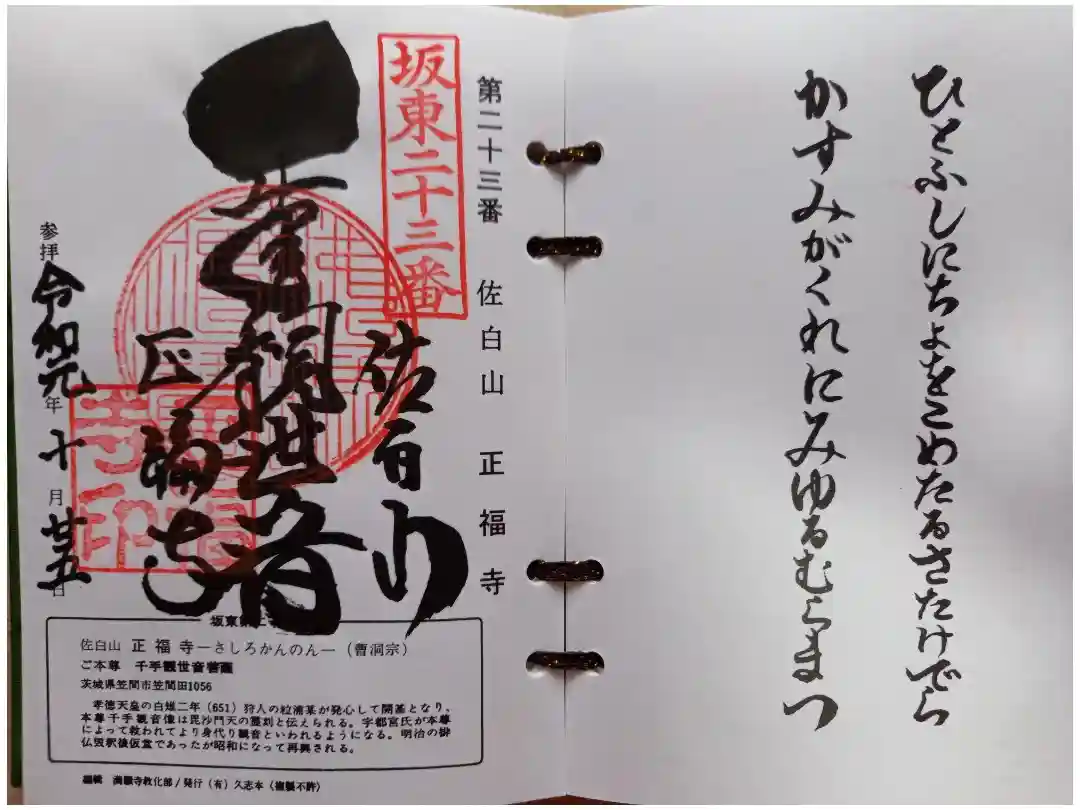 ひとふしにちよをこめたるさたけでら
かすみがくれにみゆるむらまつ
第二十三番 佐白山 正福寺
坂東二十三番
佐白山
観世音
正福寺
寺印
参拝 令和元年十月廿五日
坂東
佐白山 正福寺―さしろかんのん―(曹洞宗)
ご本尊 千手観世音菩薩
茨城県笠間市笠間田1056
孝徳天皇の白雉二年(651)狩人の粒浦某が発心して開基となり、
本尊千手観音像は毘沙門天の霊刻と伝えられる。宇都宮氏が本尊
によって救われてより身代り観音といわれるようになる。明治の排
仏毀釈後仮堂であったが昭和になって再興される。
編輯 満願寺教化部/発行(有)久志本(複製不許)